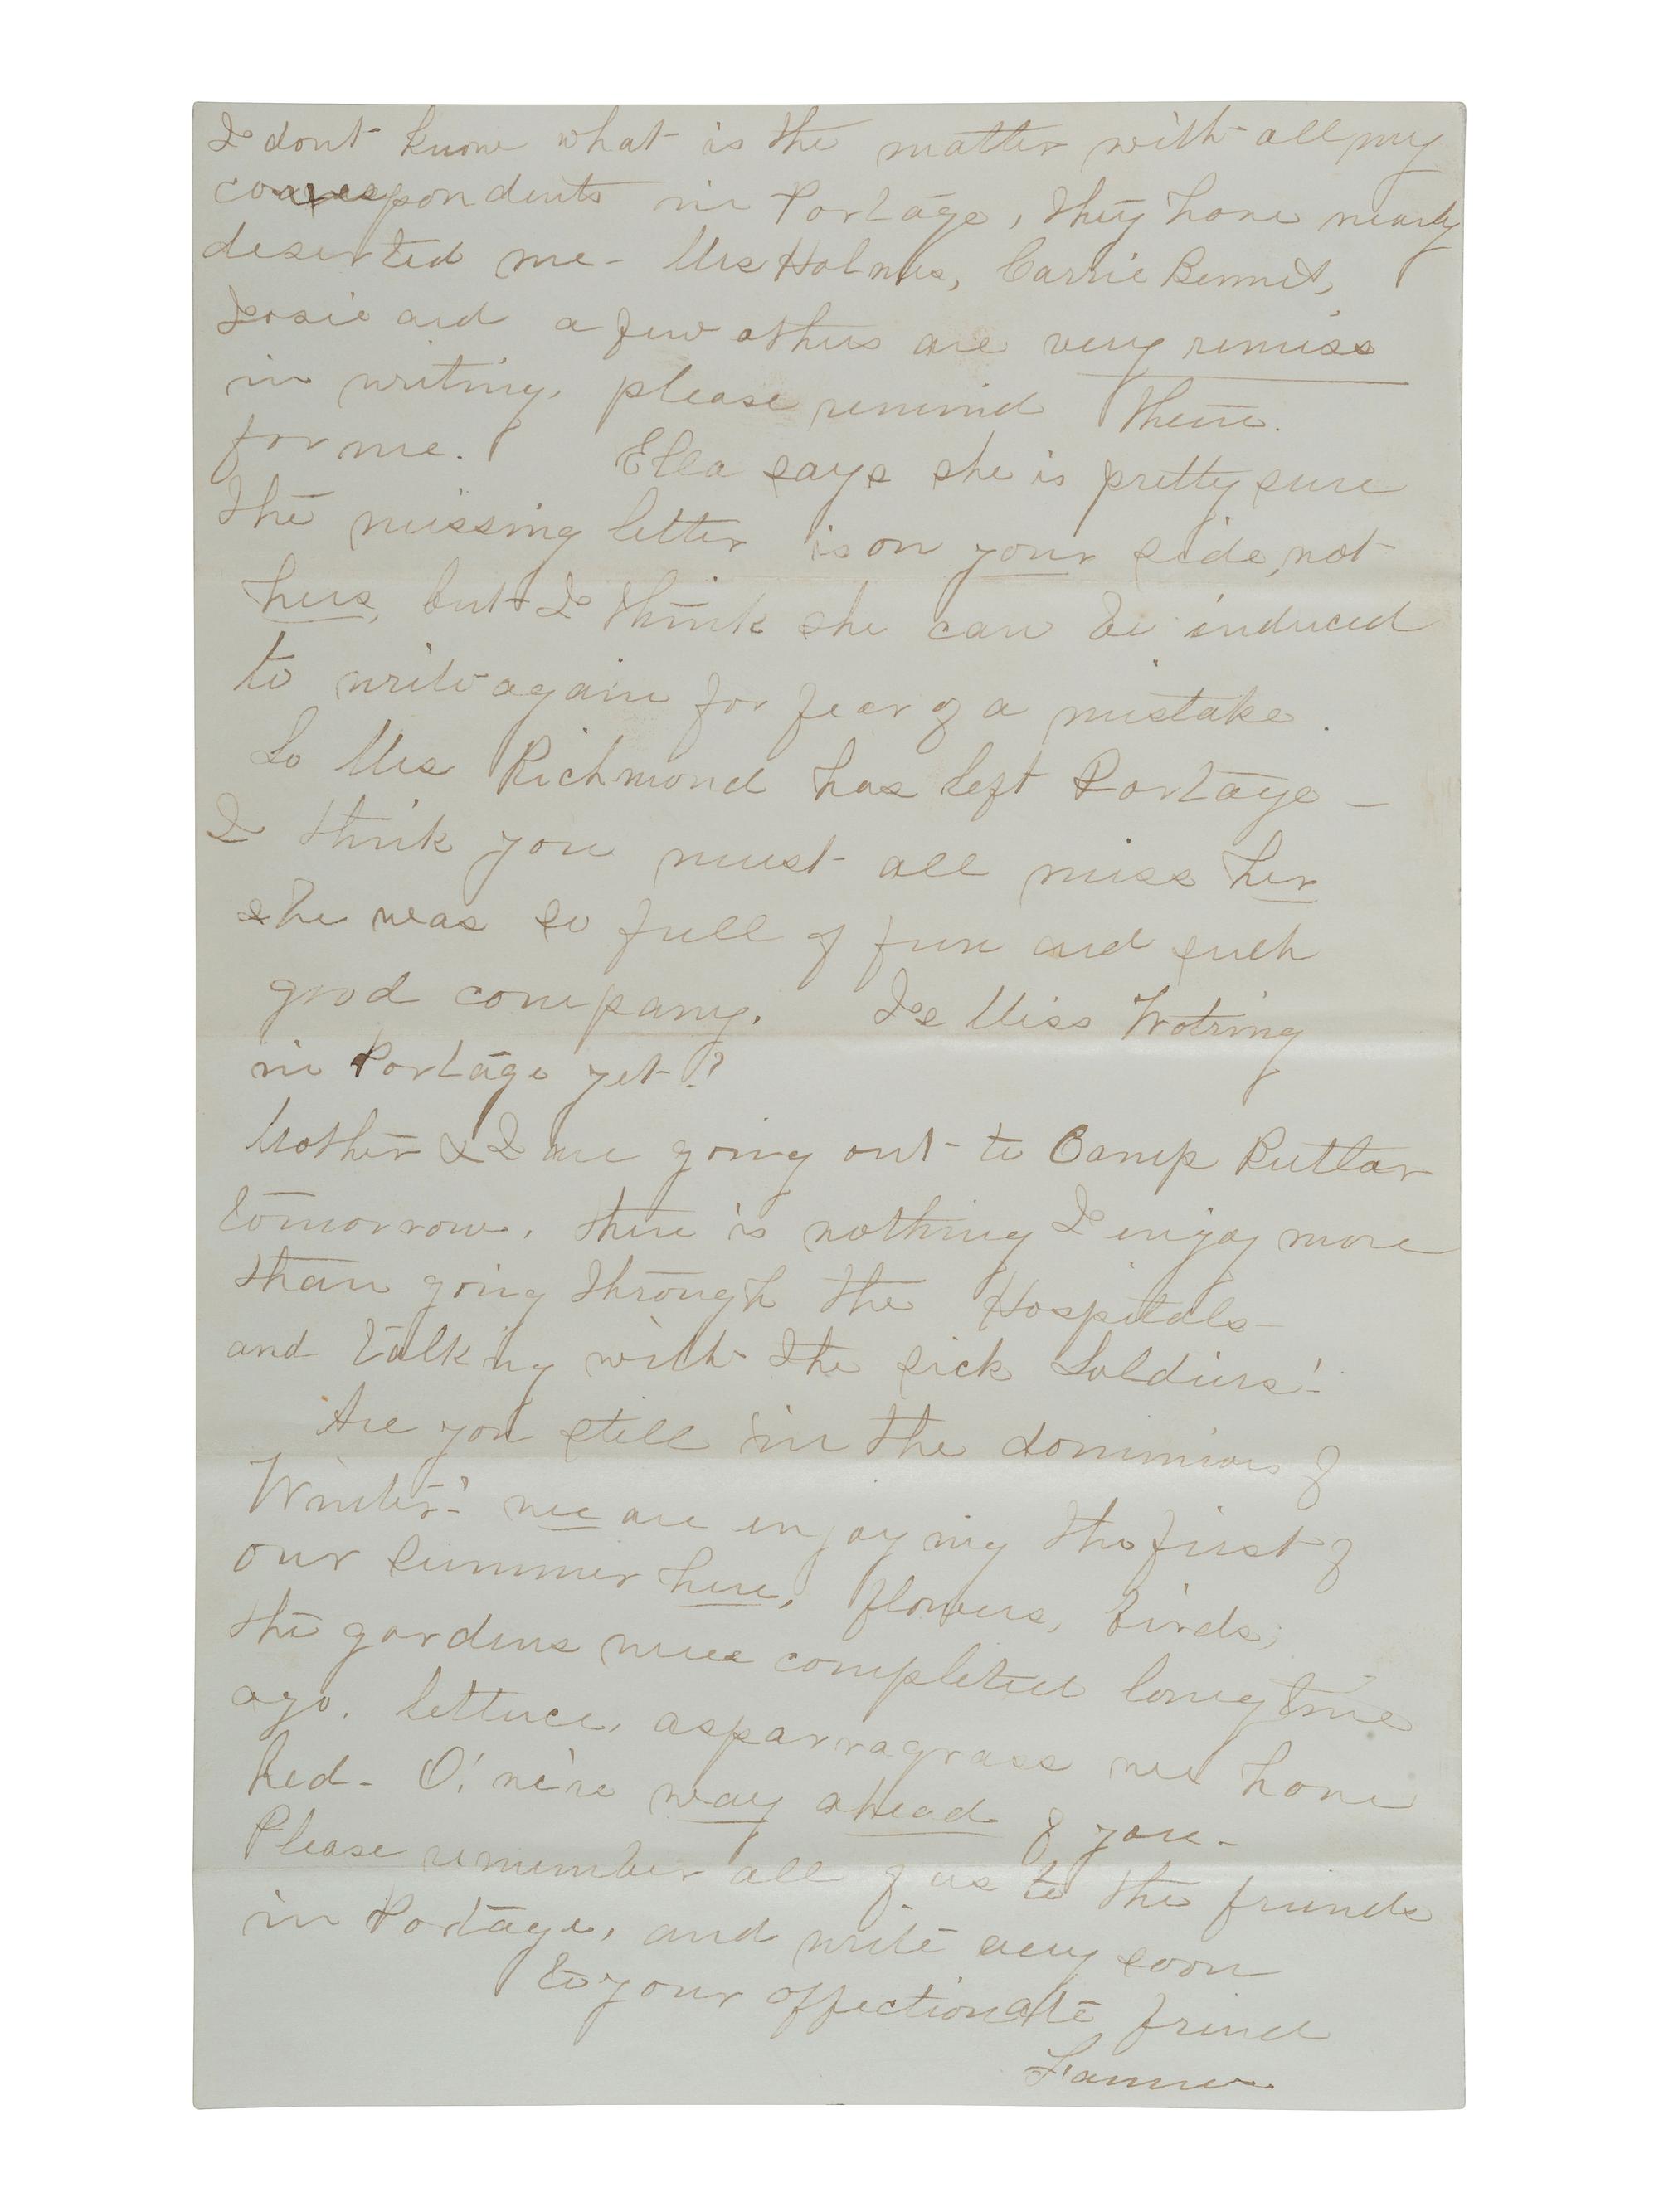 I dont know what is the matter with all my
correspondents in Portage, they have nearly
deserted me - Mrs Holmes, Carrie Bennet,
Josie and a few others are very remiss
in writing, please remind them.
for me. Ella says she is pretty sure
the missing letter is on your side, not
hers, but I think she can be induced
to write again for fear of a mistake.
So Mrs Richmond has left Portage -
I think you must all miss her
she was so full of fun and such
good company. Is Miss Wotring
in Portage yet?
Mother & I are going out to Camp Butlar
tomorrow. there is nothing I enjoy more
than going through the Hospitals -
and talking with the sick Soldiers!
Are you still in the dominions of
Winter! we are enjoying the first of
our summer here, flowers, birds,
the gardens were completed long time
ago. lettuce, asparragrass we have
had - O! we're way ahead of you -
Please remember all of us to the friends
in Portage, and write very soon
to your affectionate friend
Fannie